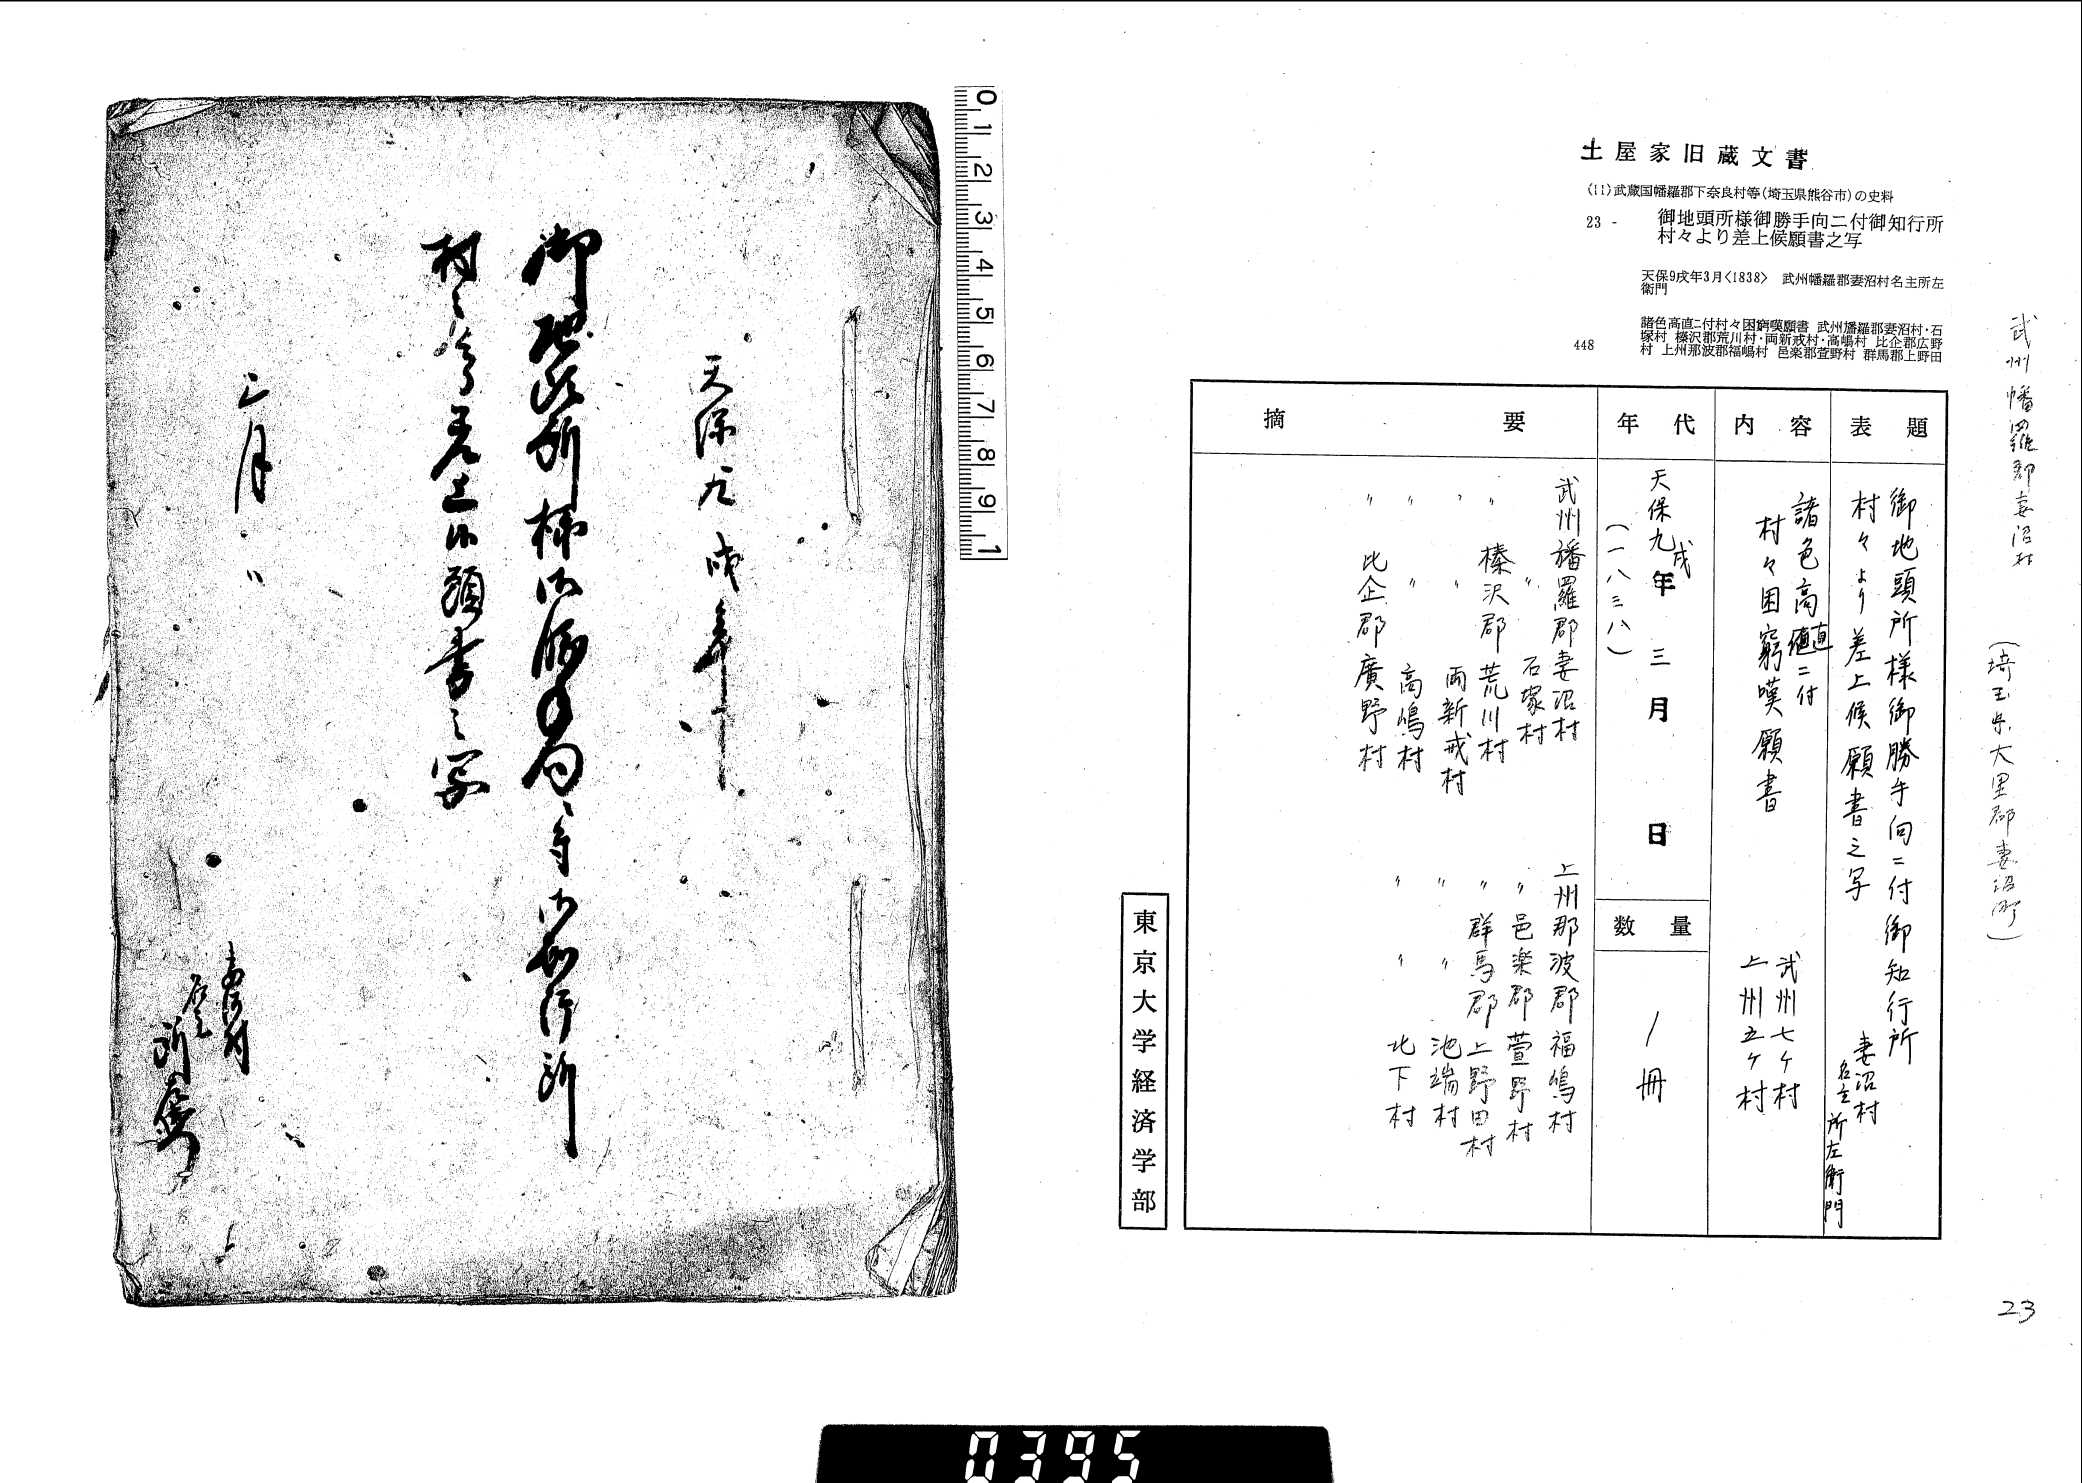 土屋家旧蔵文書
(11)武蔵国幡羅郡下奈良村等(埼玉県熊谷市)の史料
23 - 御地頭所様御勝手向ニ付御知行所
村々より差上候願書之写
天保9戌年3月<1838> 武州幡羅郡妻沼村名主所左
衛門
諸色高直ニ付村々困窮嘆願書 武州旛羅郡妻沼村・石
塚村 榛沢郡荒川村・両新戒村・高嶋村 比企郡広野
448 村 上州那波郡福嶋村 邑楽郡萱野村 群馬郡上野田
武州幡羅郡妻沼村 (埼玉県大里郡妻沼町)
表題
御地頭所様御勝手向ニ付御知行所
村々より差上候願書之写
妻沼村
名主 所左衛門
内容
諸色高値直ニ付
村々困窮嘆願書
武州七ケ村
上州五ケ村
年代
天保九戌年三月 日
(一八三八)
数量
1冊
摘要
武州旛羅郡妻沼村
〃 〃 石塚村
榛沢郡荒川村
〃 〃 両新戒村
〃 〃 高嶋村
〃 比企郡廣野村
上州那波郡福嶋村
〃 邑楽郡萱野村
〃 群馬郡上野田村
〃 〃 池端村
〃 〃 北下村
東京大学経済学部
23
天保九戌年
御地頭所様御勝手向ニ付御知行所
村々より差上候願書之写
三月
妻沼村
名主
所左衛門
0 1 2 3 4 5 6 7 8 9 1
0395